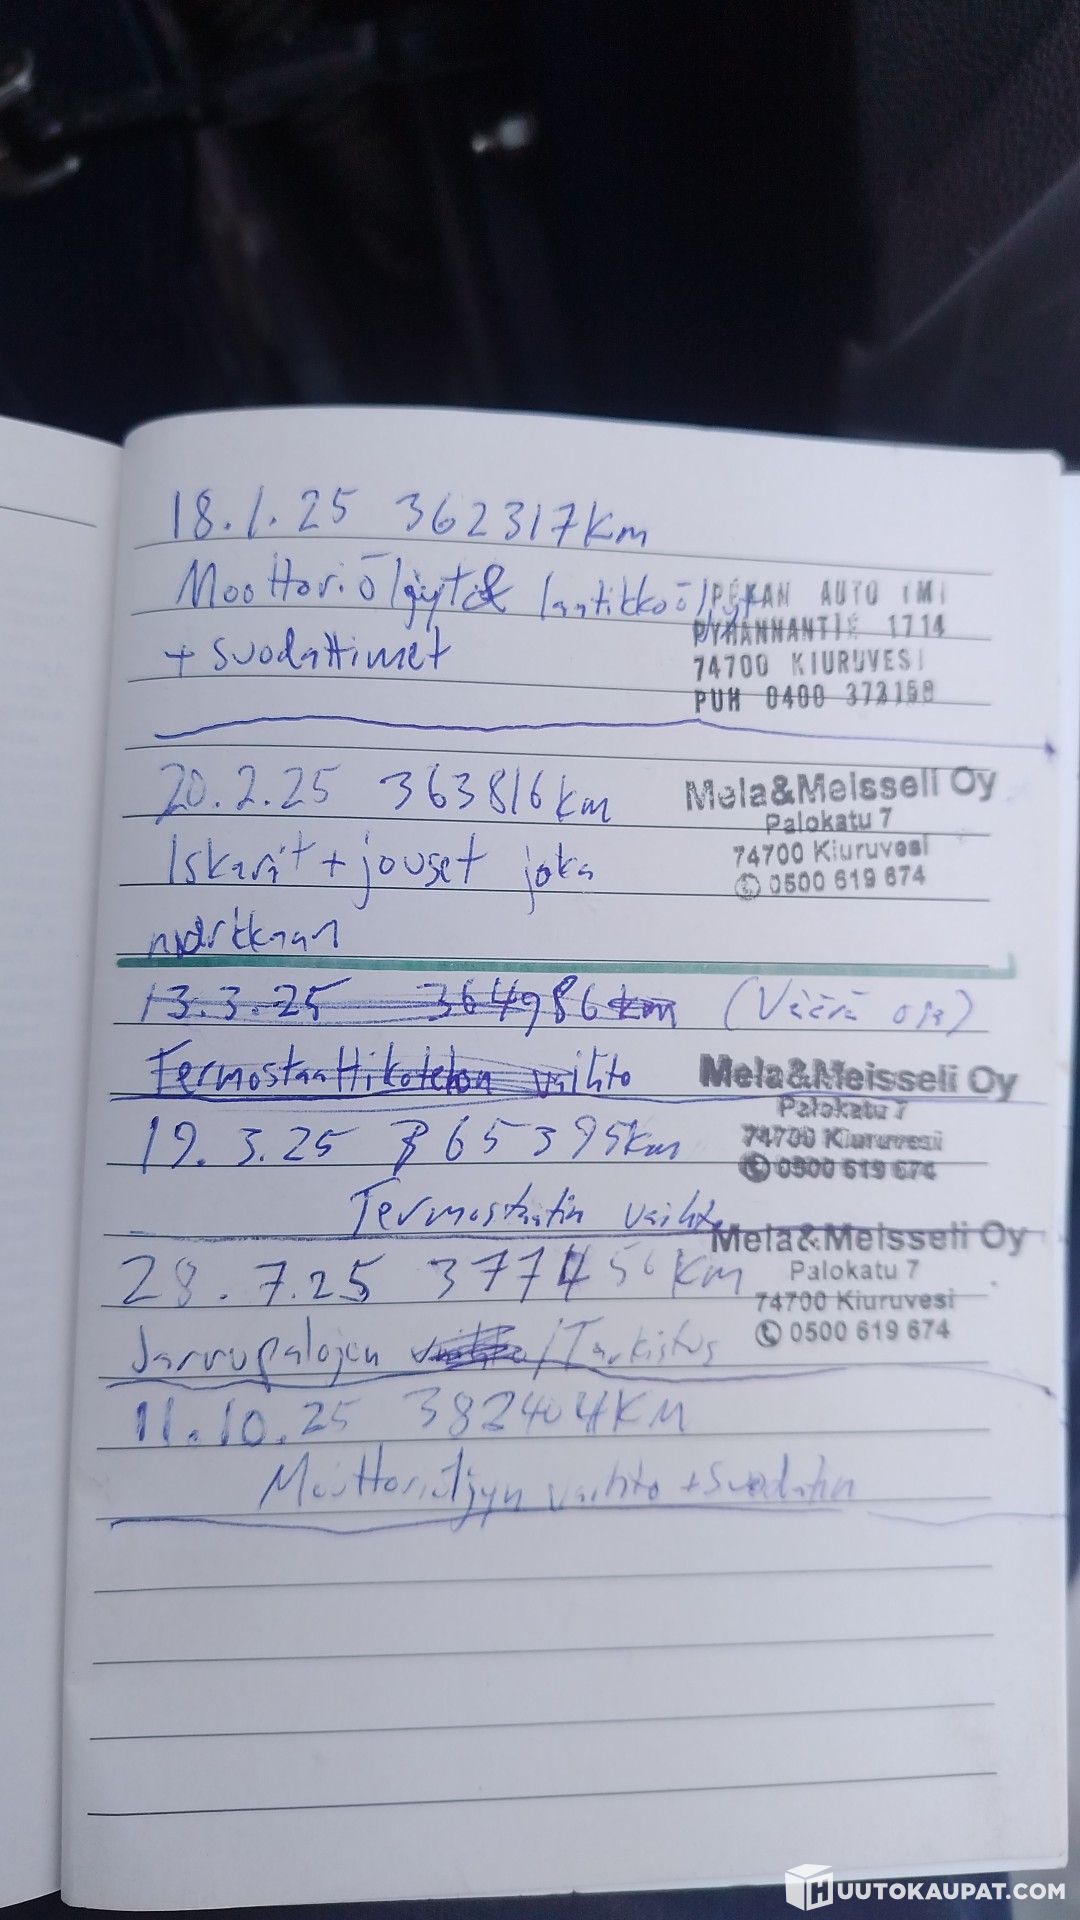 18.1.25 362317km
Moottoriöljyt & laatikkoöljyt
+ suodattimet
PEKAN AUTO TMI
PYHÄNNÄNTIE 1714
74700 KIURUVESI
PUH 0400 372158
20.2.25 363816km
Iskarit + jouset joka
nurkkaan
Mela&Meisseli Oy
Palokatu 7
74700 Kiuruvesi
0500 619 674
13.3.25 364986km (Väärä
Termostaattikotelon vaihto
Mela&Meisseli Oy
Palokatu 7
74700 Kiuruvesi
0500 619 674
19.3.25 365395km
Termostaatin vaihto
28.7.25 377456km
Jarrupalojen vaihto/Tarkistus
Mela&Meisseli Oy
Palokatu 7
74700 Kiuruvesi
0500 619 674
11.10.25 382404KM
Moottoriöljyn vaihto + suodatin
HUUTOKAUPAT.COM